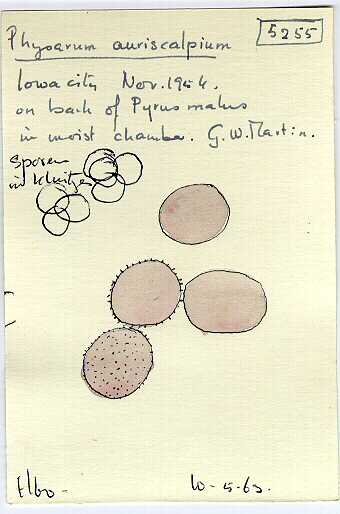 5255
Physarum auriscalpium
Iowa city Nov. 1954.
on bark of Pyrus malus
in moist chamber. G.W. Martin.
Sporen
in kluitjes
Elbo -
10-5-63.